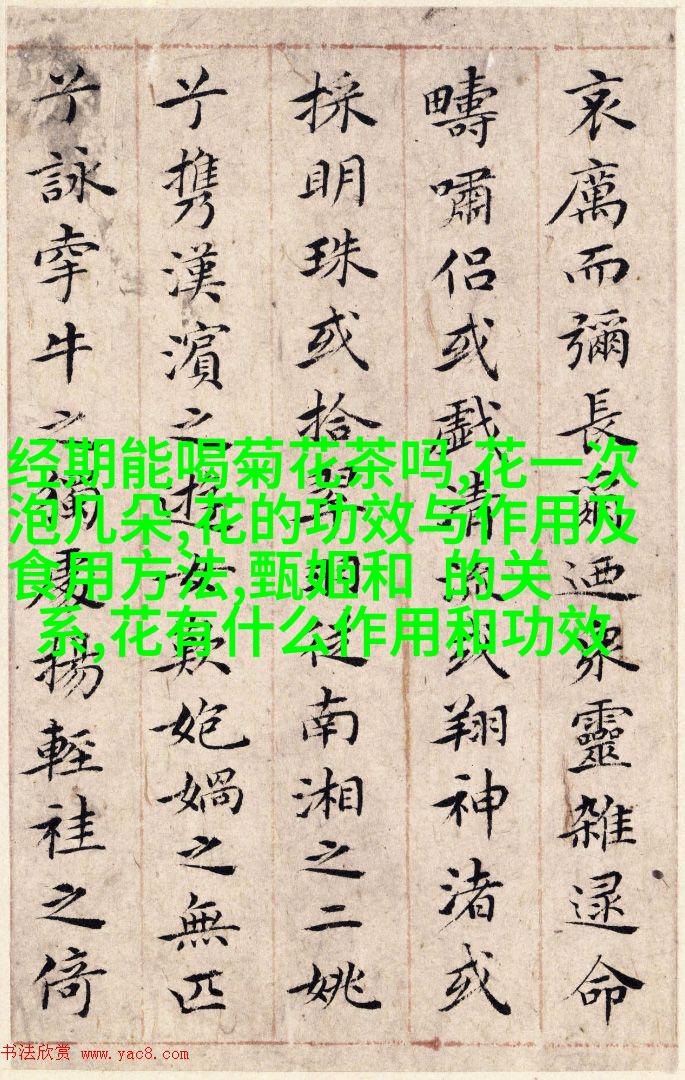 哀厲而彌長爾迺眾靈雜遝命
疇嘯侶或戲清流或翔神渚或
採明珠或拾翠羽從南湘之二姚
兮携漢濱之遊女歎㚿媧之無匹
兮詠牽牛之獨處揚輕袿之倚
经期能喝菊花茶吗,花一次
泡几朵,花的功效与作用及
食用方法,甄姬和 的关
系,花有什么作用和功效
书法欣赏 www.yac8.com